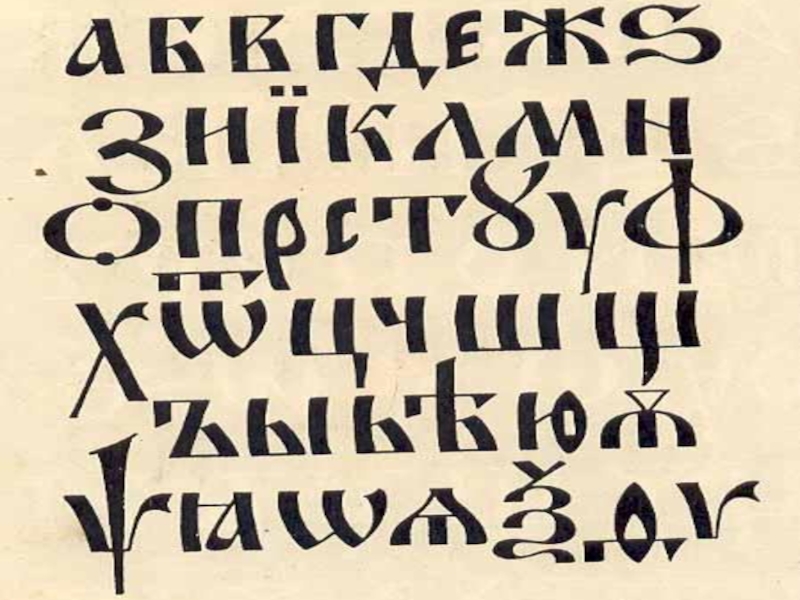 а б в в г д е ж ѕ
з и ї к л м н
о п р с т ꙋ у ф
х ѿ ц ч ш щ
ъ ы ь ѣ ю ѫ
ѱ ꙗ ѡ ѧ ѯ ѳ ѵ